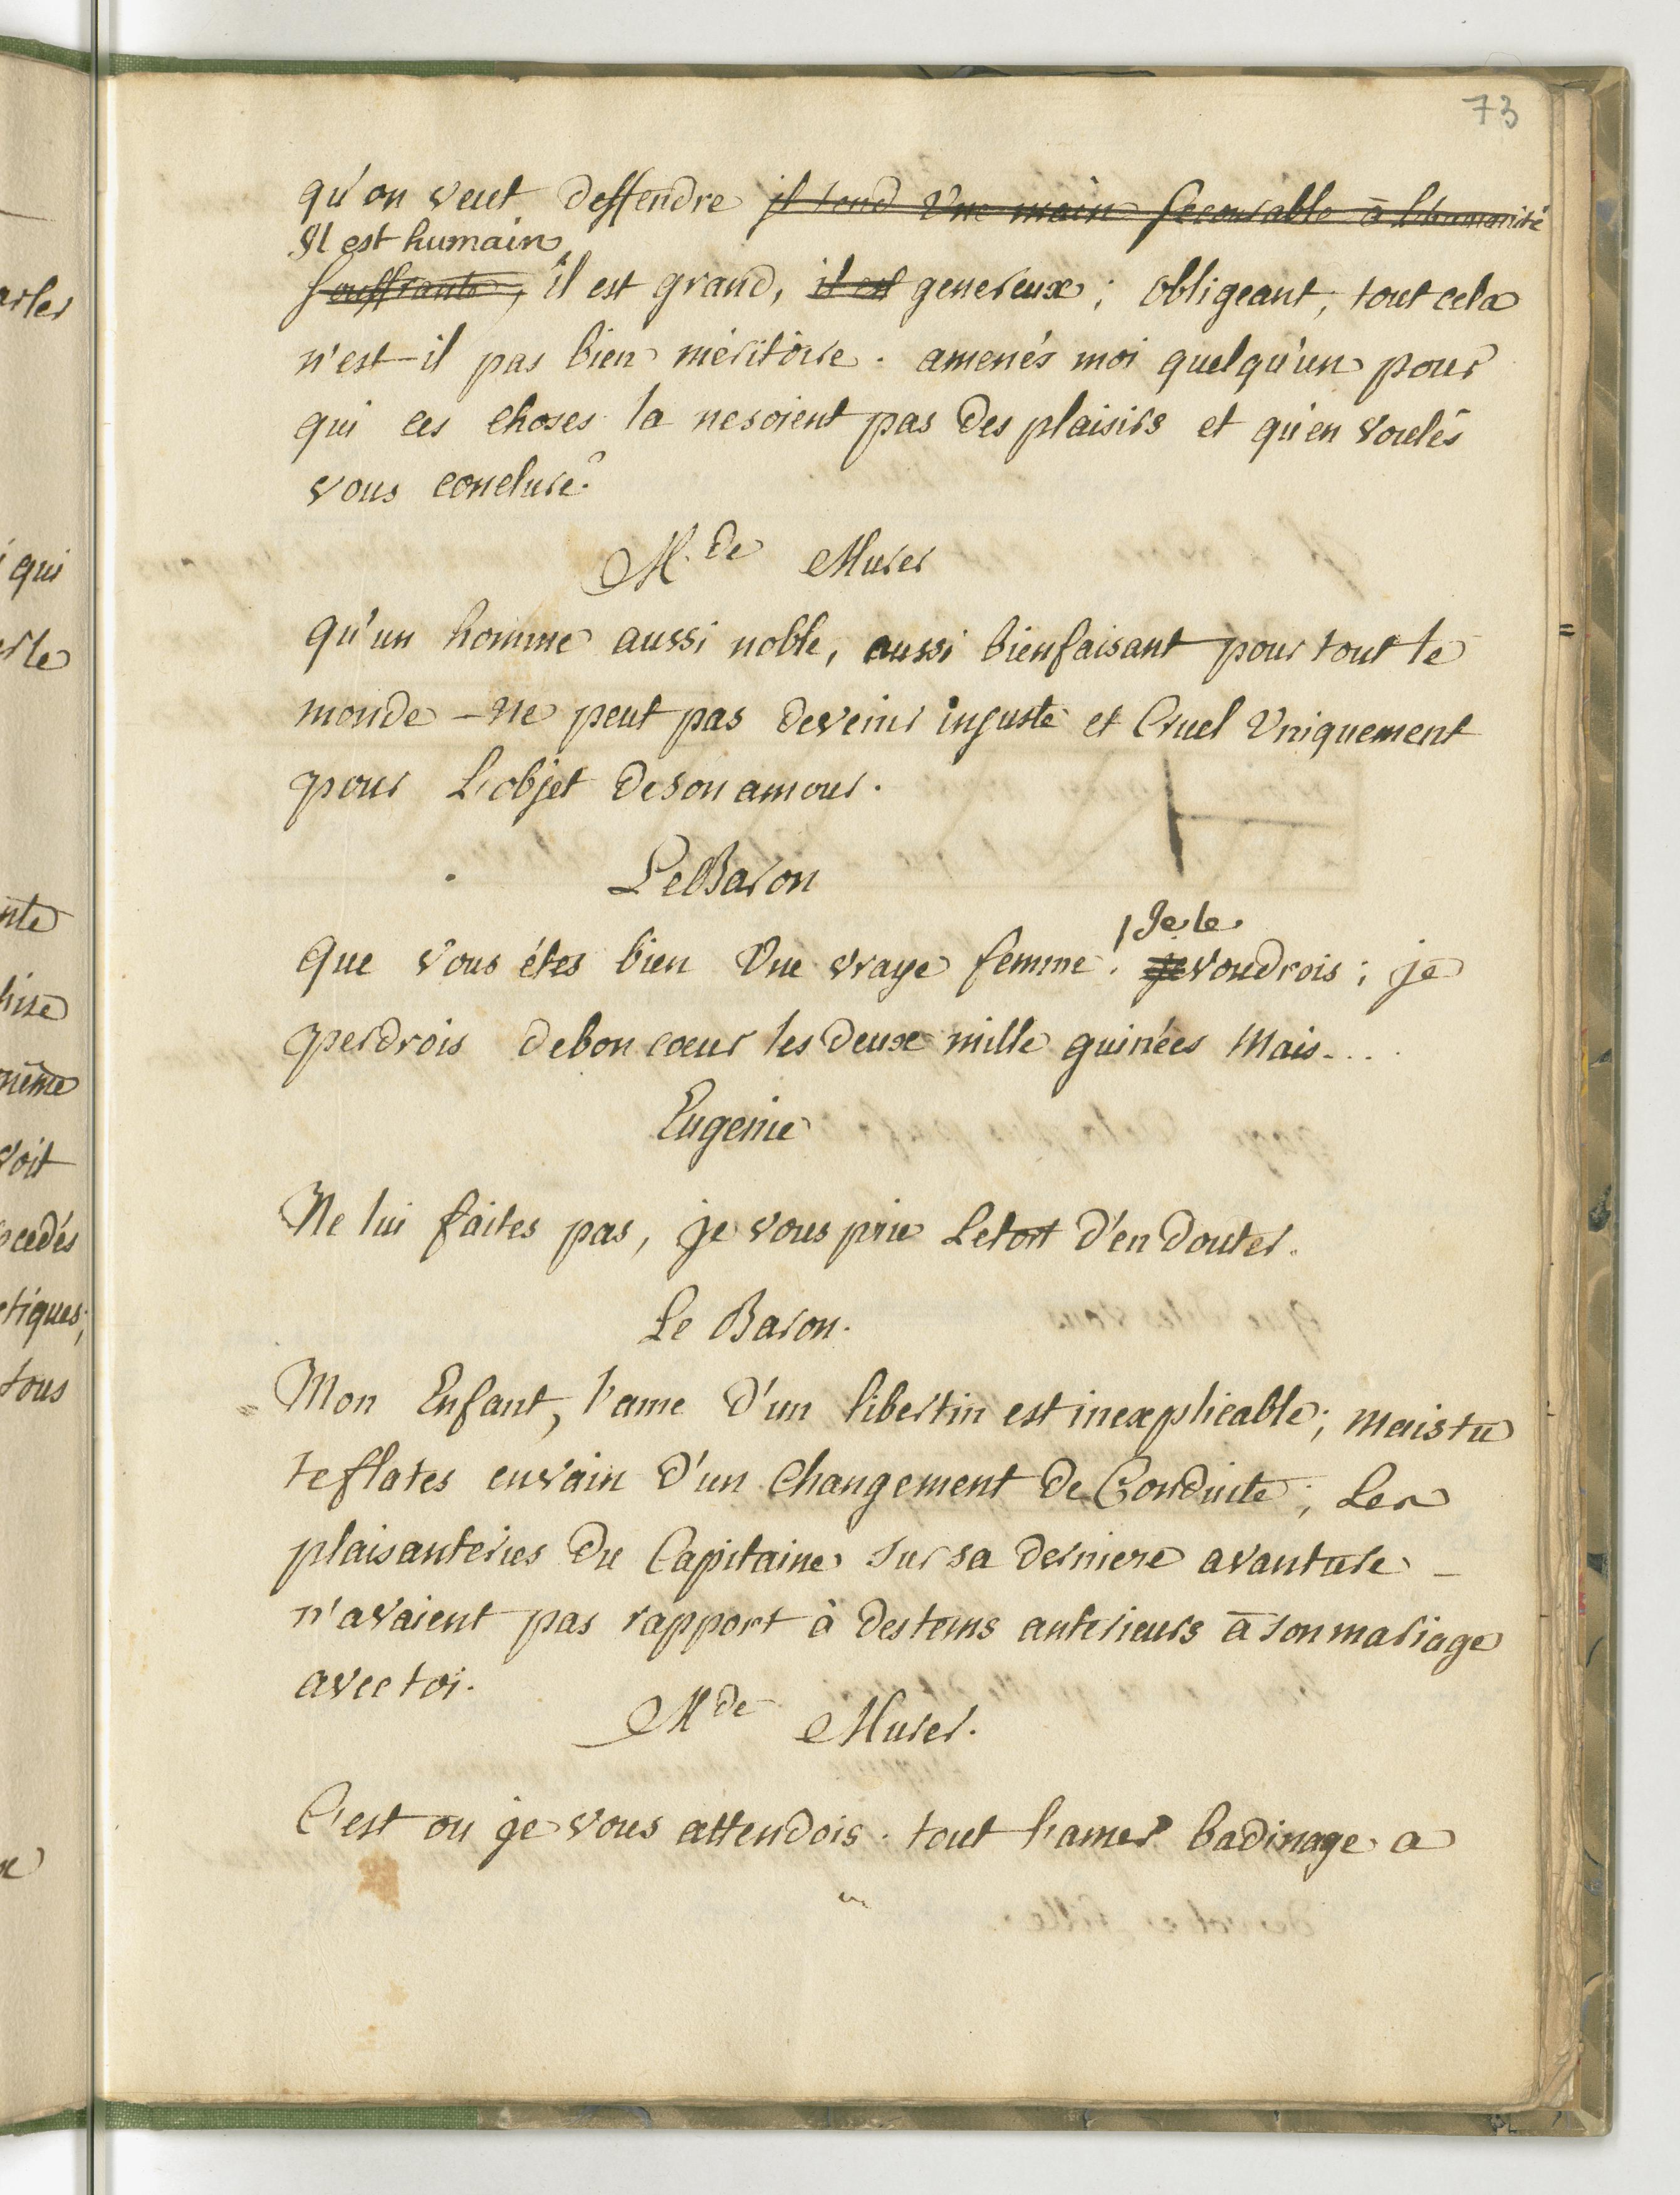 73
qu'on veut deffendre il tend Une main secourable à l'humanité
Il est humain
souffrante, il est grand, il est genereux; obligeant, tout cela
n'est-il pas bien méritoire. amenés moi quelqu'un pour
qui ces choses la ne soient pas des plaisirs et qu'en voulés
vous conclure?
M.de Murer
qu'un homme aussi noble, aussi bienfaisant pour tout le
monde - ne peut pas devenir injuste et Cruel Uniquement
pour L'objet de son amour.
Le Baron
Je le
que vous étes bien Une vraye femme! je voudrois; je
perdrois de bon cœur les deux mille guinées Mais....
Eugenie
Ne lui faites pas, je vous prie Le tort d'en douter.
Le Baron.
Mon Enfant, l'ame d'un libertin est inexplicable; mais tu
te flates en vain d'un Changement de Conduite; Les
plaisanteries du Capitaine sur sa derniere avanture -
n'avaient pas rapport à des tems anterieurs à son mariage
avec toi.
Mde Murer.
C'est ou je vous attendois. tout l'amer badinage a
arler
qui
rle
nte
même
voit
cedés
etiques;
tous